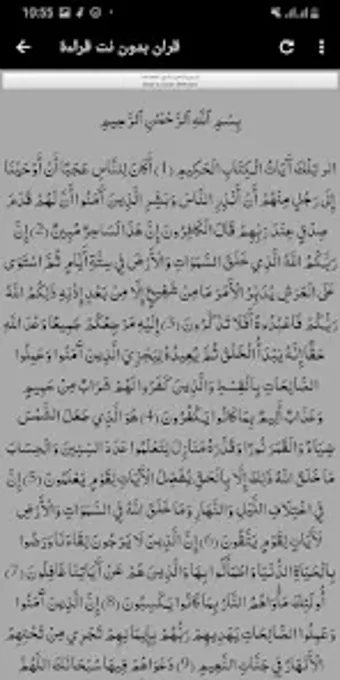 10:55
قران بدون نت قراءة
بِسْمِ اللَّهِ الرَّحْمَٰنِ الرَّحِيمِ
الر تِلْكَ آيَاتُ الْكِتَابِ الْحَكِيمِ (1) أَكَانَ لِلنَّاسِ عَجَبًا أَنْ أَوْحَيْنَا
إِلَى رَجُلٍ مِنْهُمْ أَنْ أَنْذِرِ النَّاسَ وَبَشِّرِ الَّذِينَ آمَنُوا أَنَّ لَهُمْ قَدَمَ
صِدْقٍ عِنْدَ رَبِّهِمْ قَالَ الْكَافِرُونَ إِنَّ هَذَا لَسَاحِرٌ مُبِينٌ (2) إِنَّ
رَبَّكُمُ اللَّهُ الَّذِي خَلَقَ السَّمَوَاتِ وَالْأَرْضَ فِي سِتَّةِ أَيَّامٍ ثُمَّ اسْتَوَى
عَلَى الْعَرْشِ يُدَبِّرُ الْأَمْرَ مَا مِنْ شَفِيعٍ إِلَّا مِنْ بَعْدِ إِذْنِهِ ذَلِكُمُ اللَّهُ
رَبُّكُمْ فَاعْبُدُوهُ أَفَلَا تَذَكَّرُونَ (3) إِلَيْهِ مَرْجِعُكُمْ جَمِيعًا وَعْدَ اللَّهِ
حَقًّا إِنَّهُ يَبْدَأُ الْخَلْقَ ثُمَّ يُعِيدُهُ لِيَجْزِيَ الَّذِينَ آمَنُوا وَعَمِلُوا
الصَّالِحَاتِ بِالْقِسْطِ وَالَّذِينَ كَفَرُوا لَهُمْ شَرَابٌ مِنْ حَمِيمٍ
وَعَذَابٌ أَلِيمٌ بِمَا كَانُوا يَكْفُرُونَ (4) هُوَ الَّذِي جَعَلَ الشَّمْسَ
ضِيَاءً وَالْقَمَرَ نُورًا وَقَدَّرَهُ مَنَازِلَ لِتَعْلَمُوا عَدَدَ السِّنِينَ وَالْحِسَابَ
مَا خَلَقَ اللَّهُ ذَلِكَ إِلَّا بِالْحَقِّ يُفَصِّلُ الْآيَاتِ لِقَوْمٍ يَعْلَمُونَ (5) إِنَّ
فِي اخْتِلَافِ اللَّيْلِ وَالنَّهَارِ وَمَا خَلَقَ اللَّهُ فِي السَّمَوَاتِ وَالْأَرْضِ
لَآيَاتٍ لِقَوْمٍ يَتَّقُونَ (6) إِنَّ الَّذِينَ لَا يَرْجُونَ لِقَاءَنَا وَرَضُوا
بِالْحَيَاةِ الدُّنْيَا وَاطْمَأَنُّوا بِهَا وَالَّذِينَ هُمْ عَنْ آيَاتِنَا غَافِلُونَ (7)
أُولَئِكَ مَأْوَاهُمُ النَّارُ بِمَا كَانُوا يَكْسِبُونَ (8) إِنَّ الَّذِينَ آمَنُوا
وَعَمِلُوا الصَّالِحَاتِ يَهْدِيهِمْ رَبُّهُمْ بِإِيمَانِهِمْ تَجْرِي مِنْ تَحْتِهِمُ
الْأَنْهَارُ فِي جَنَّاتِ النَّعِيمِ (9) دَعْوَاهُمْ فِيهَا سُبْحَانَكَ اللَّهُمَّ